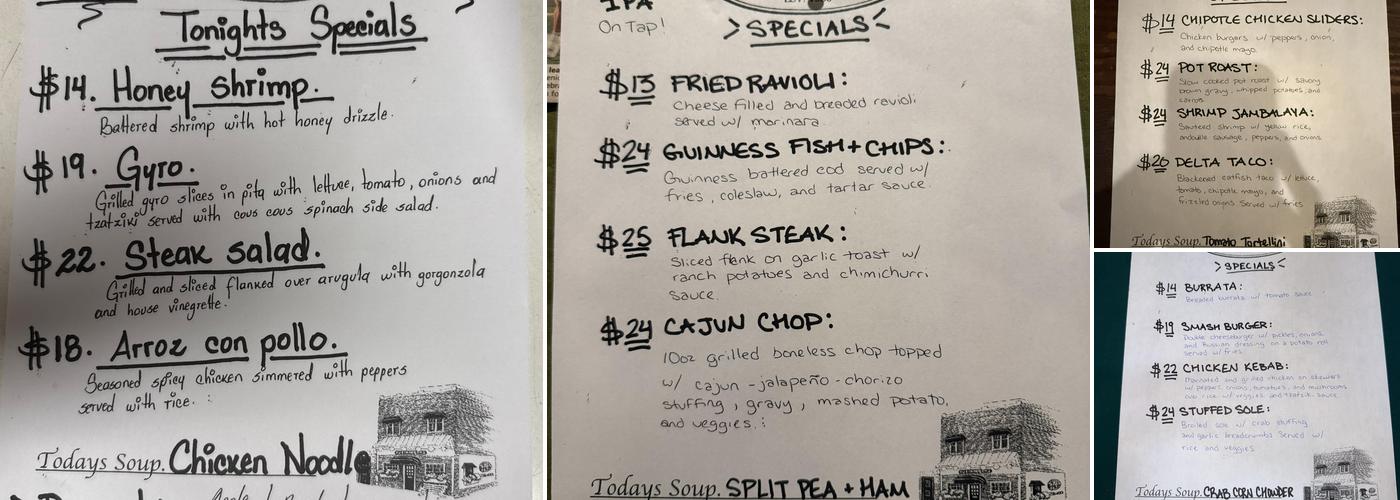 Tonights Specials
$14. Honey shrimp.
Battered shrimp with hot honey drizzle.
$19. Gyro.
Grilled gyro slices in pita with lettuce, tomato, onions and
tzatziki served with cous cous spinach side salad.
$22. Steak salad.
Grilled and sliced flanked over arugula with gorgonzola
and house vinegrette.
$18. Arroz con pollo.
Seasoned spicy chicken simmered with peppers
served with rice.
Todays Soup. Chicken Noodle
IPA
On Tap!
SPECIALS
$13 FRIED RAVIOLI:
Cheese filled and breaded ravioli
served w/ marinara
$24 GUINNESS FISH + CHIPS:
Guinness battered cod served w/
fries, coleslaw, and tartar sauce.
$25 FLANK STEAK:
Sliced flank on garlic toast w/
ranch potatoes and chimichurri
sauce.
$24 CAJUN CHOP:
10oz grilled boneless chop topped
w/ cajun-jalapeño-chorizo
stuffing, gravy, mashed potato,
and veggies.
Todays Soup. SPLIT PEA + HAM
$14 CHIPOTLE CHICKEN SLIDERS:
Chicken burgers w/ peppers, onion,
and chipotle mayo.
$24 POT ROAST:
Slow cooked pot roast w/ savory
brown gravy, whipped potatoes, and
carrots
$24 SHRIMP JAMBALAYA:
Sauteed shrimp w/ yellow rice,
andouille sausage, peppers, and onions
$20 DELTA TACO:
Blackened catfish taco w/ lettuce,
tomato, chipotle mayo, and
frizzled onions Served w/ fries
Todays Soup. Tomato Tortellini
SPECIALS
$14 BURRATA:
Breaded burrata w/ tomato sauce
$19 SMASH BURGER:
Double cheeseburger w/ pickles, onions,
and Russian dressing on a potato roll
served w/ fries
$22 CHICKEN KEBAB:
Marinated and grilled chicken on skewers
w/ peppers, onions, tomatoes, and mushrooms
over rice w/ veggies and tzatziki sauce
$24 STUFFED SOLE:
Broiled sole w/ crab stuffing
and garlic breadcrumbs Served w/
rice and veggies
Todays Soup. CRAB CORN CHOWDER